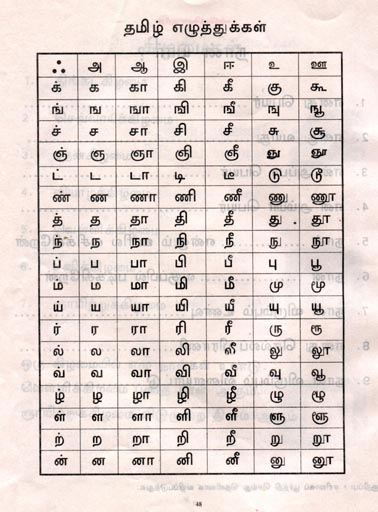 தமிழ் எழுத்துக்கள்
ஃ அ ஆ இ ஈ உ ஊ
க் க கா கி கீ கு கூ
ங் ங ஙா ஙி ஙீ ஙு ஙூ
ச் ச சா சி சீ சு சூ
ஞ் ஞ ஞா ஞி ஞீ ஞு ஞூ
ட் ட டா டி டீ டு டூ
ண் ண ணா ணி ணீ ணு ணூ
த் த தா தி தீ து தூ
ந் ந நா நி நீ நு நூ
ப் ப பா பி பீ பு பூ
ம் ம மா மி மீ மு மூ
ய் ய யா யி யீ யு யூ
ர் ர ரா ரி ரீ ரு ரூ
ல் ல லா லி லீ லு லூ
வ் வ வா வி வீ வு வூ
ழ் ழ ழா ழி ழீ ழு ழூ
ள் ள ளா ளி ளீ ளு ளூ
ற் ற றா றி றீ று றூ
ன் ன னா னி னீ னு னூ
48